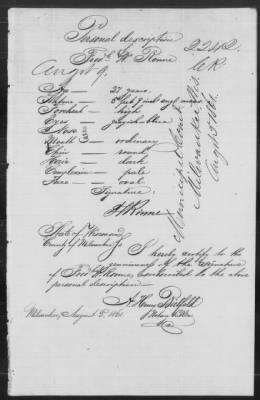 Personal description
Fredk W. Ronne
2242.
CR.
Augst 9.
Age — 27 years.
Stature — 5 feet
Forehead — high
Eyes — grayish blue
Nose
Mouth — ordinary
Chin — round
Hair — dark
Complexion — pale
Face — oval
Signature:
Municipal Court
Milwaukee Wis
Augst 5 1861.
State of Wisconsin
County of Milwaukee
I hereby certify to the
genuineness of the signature
of Fred W. Ronne, to the above
personal description —
A. Henry
Milwaukee, August 5. 1861